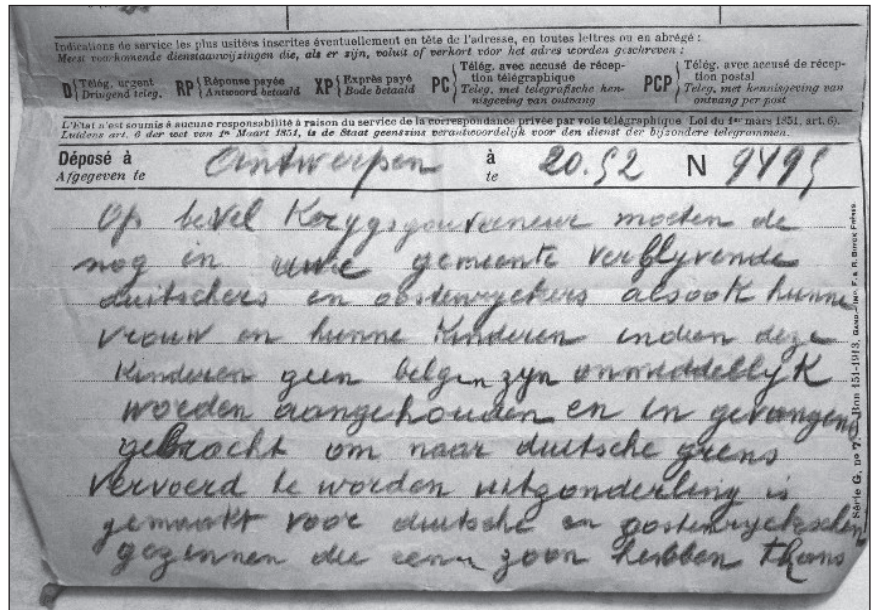 Indications de service les plus usitées inscrites éventuellement en tête de l'adresse, en toutes lettres ou en abrégé :
Meest voorkomende dienstaanwijzingen die, als er zijn, voluit of verkort vóór het adres worden geschreven :
D Télég. urgent Dringend teleg.
RP Réponse payée Antwoord betaald
XP Exprès payé Bode betaald
PC Télég. avec accusé de réception télégraphique Teleg. met telegrafische kennisgeving van ontvang
PCP Télég. avec accusé de réception postal Teleg. met kennisgeving van ontvang per post
L'Etat n'est soumis à aucune responsabilité à raison du service de la correspondance privée par voie télégraphique (Loi du 1er mars 1851, art. 6).
Luidens art. 6 der wet van 1n Maart 1851, is de Staat geenszins verantwoordelijk voor den dienst der bijzondere telegrammen.
Déposé à Antwerpen à 20.52 N 9495
Afgegeven te te
Op bevel Krygsgouverneur moeten de
nog in uwe gemeente verblyvende
duitschers en oostenryckers alsook hunne
vrouw en hunne Kinderen indien deze
Kinderen geen belgen zyn onmiddellyk
worden aangehouden en in gevangens
gebracht om naar duitsche grens
vervoerd te worden uitzonderling is
gemaakt voor duitsche en oostenryckschen
gezinnen die eenen zoon hebben thans
Série G, no 7. Bon 151-1913. Gand.